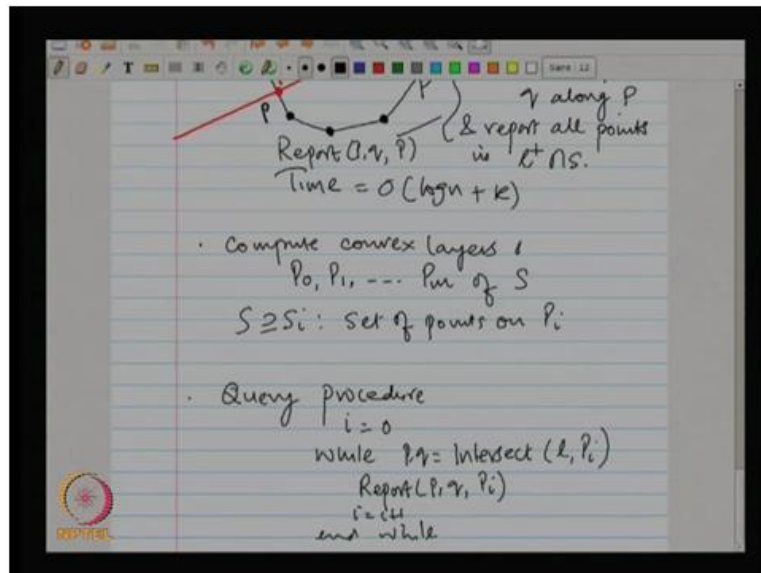 T
Sans 12
P
P
q along P
& report all points
in l+ ∩ S.
Report(p,q,P)
Time = O(logn + k)
· Compute convex layers
P0, P1, ---- Pm of S
S ⊇ Si : Set of points on Pi
· Query procedure
i = 0
while p,q = Intersect (l, Pi)
Report(p, q, Pi)
i = i+1
end while
NPTEL